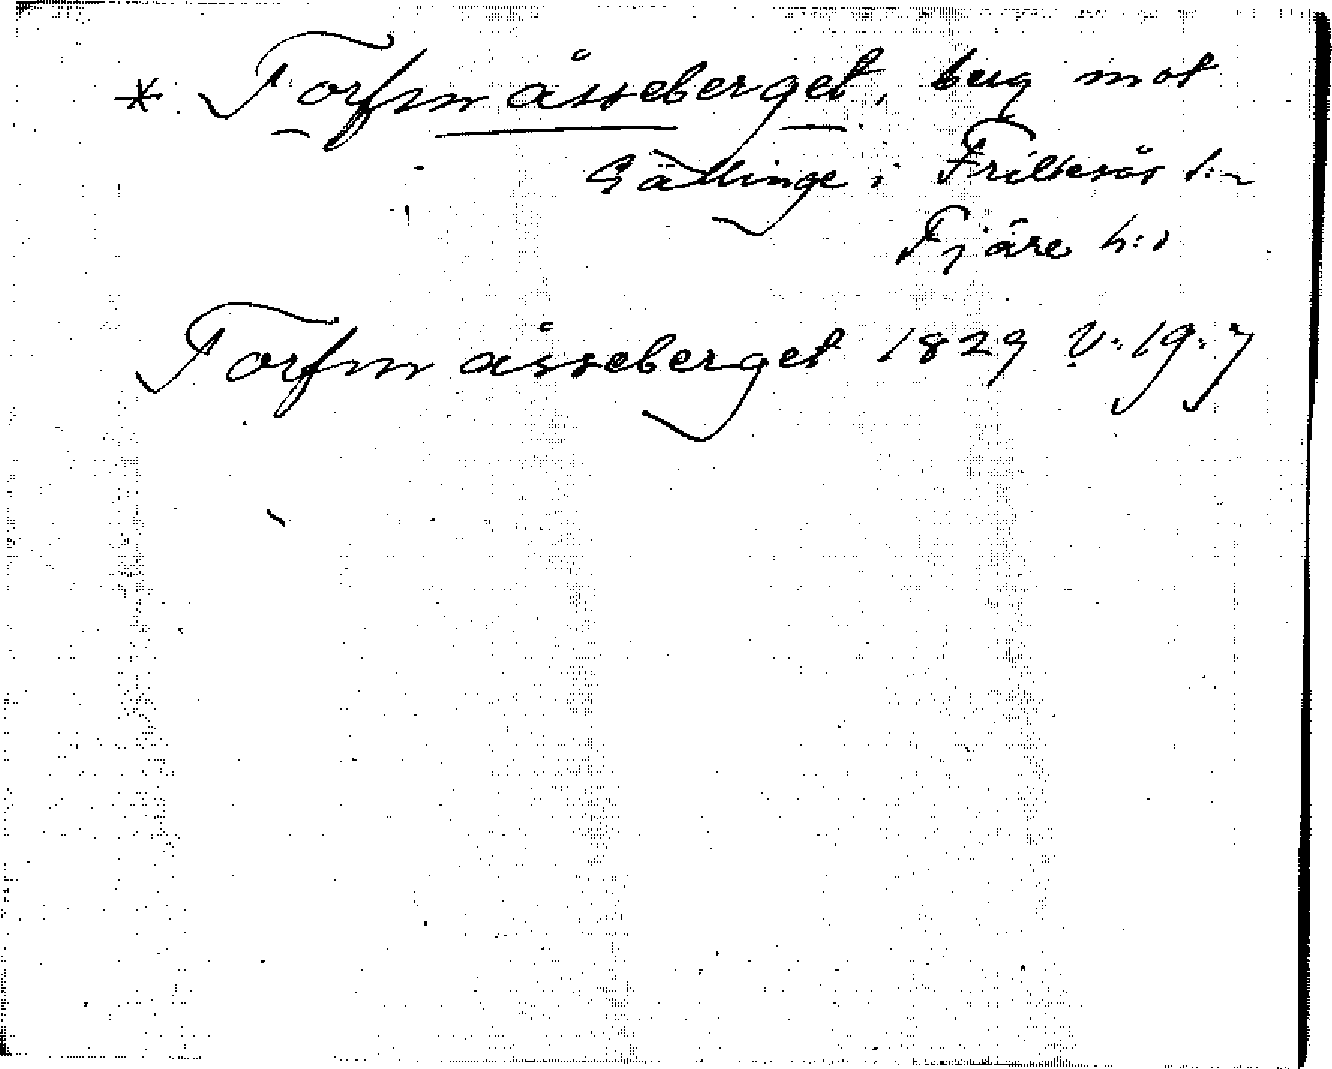 * Torfmåsseberget, berg mot
Gällinge i Frillesås s:n
Fjäre h:d
Torfmåsseberget 1829 V:19:7